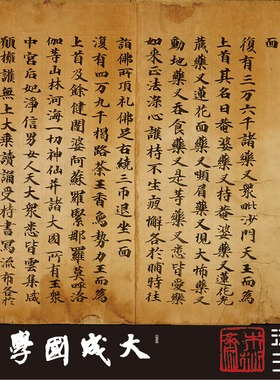 面
復有三万六千諸藥叉毗沙門天王而為
上首其名曰菴婆藥叉持菴婆藥叉蓮花光
藏藥叉蓮花面藥叉顰眉藥叉現大怖藥叉
動地藥叉吞食藥叉是等藥叉悉皆愛樂
如来正法深心護持不生疲懈各於晡時往
詣佛所頂礼佛足右繞三帀退坐一面
復有四万九千揭路荼王香象勢力王而為
上首及餘健闥婆阿蘇羅緊那羅莫呼洛
伽等山林河海一切神仙并諸大國所有王衆
中宮后妃淨信男女人天大衆悉皆雲集咸
願擁護無上大乘讀誦受持書寫流布各於
大成國學